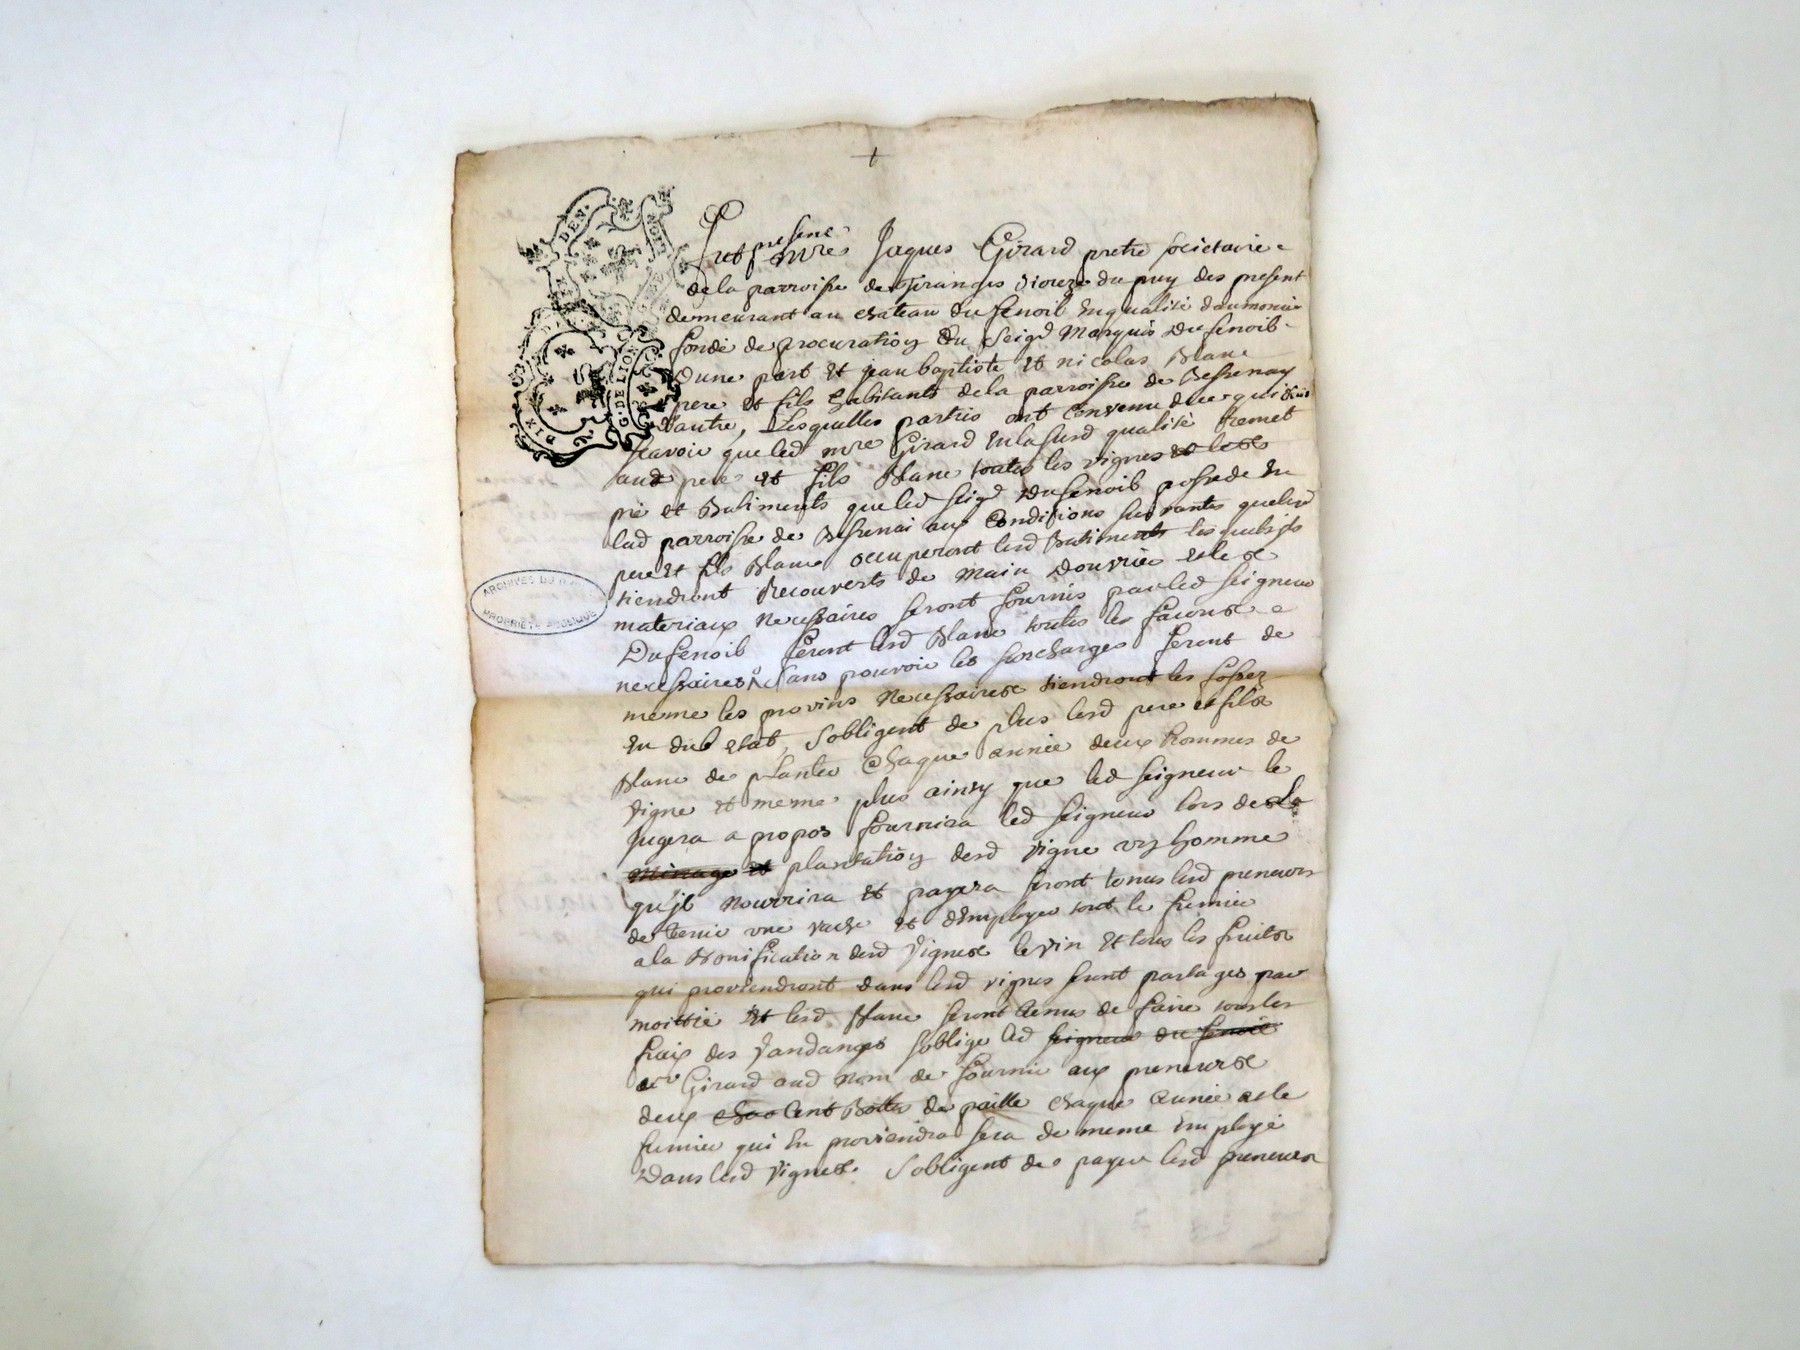 +
DIX DEN.
G. DE LION
ARCHIVES DU
PROPRIETE PUBLIQUE
Fut present
mre Jaques Girard pretre societaire
de la parroisse de du puy des present
demeurant au chateau du Senoil en qualité daumonier
fondé de procuration du Seigr Marquis du Senoil
dune part et jean baptiste et nicolas Blanc
pere et fils habitants de la parroisse de Bessenay
dautre, Lesquelles parties ont convenu de ce qui suit
scavoir que led mre Girard en lasusd qualité remet
aud pere et fils Blanc toutes les vignes
pré et Batiments que led Seigr du Senoil possede en
lad parroisse de Bessenai aux Conditions suivantes que lesd
pere et fils Blanc occuperont lesd Batiments lesquels ils
tiendront Recouverts de main douvrier et les
materiaux necessaires seront fournis par led Seigneur
Du Senoil feront lesd Blanc toutes les facons
necessaires sans pouvoir les surcharges feront de
meme les provins necessaires tiendront les fossez
en du etat, Sobligent de plus lesd pere et fils
Blanc de planter Chaque année deux hommes de
vigne et meme plus ainsy que led seigneur le
jugera a propos fournira led Seigneur lors de la
minage et plantation desd vigne un homme
qu'jl nourrira et payera seront tenus lesd preneurs
de tenir une vache et demployer tout le fumier
a la Bonification desd Vignes le vin et tous les fruits
qui proviendront dans lesd vignes seront partages par
moittié et lesd Blanc seront tenus de faire tous les
fraix des Vandanges Soblige led seigneur du Senoil
sr Girard aud nom de fournir aux preneurs
deux Cent Bottes de paille chaque année et le
fumier qui en proviendra sera de meme employé
Dans lesd Vignes. Sobligent de payer lesd preneurs